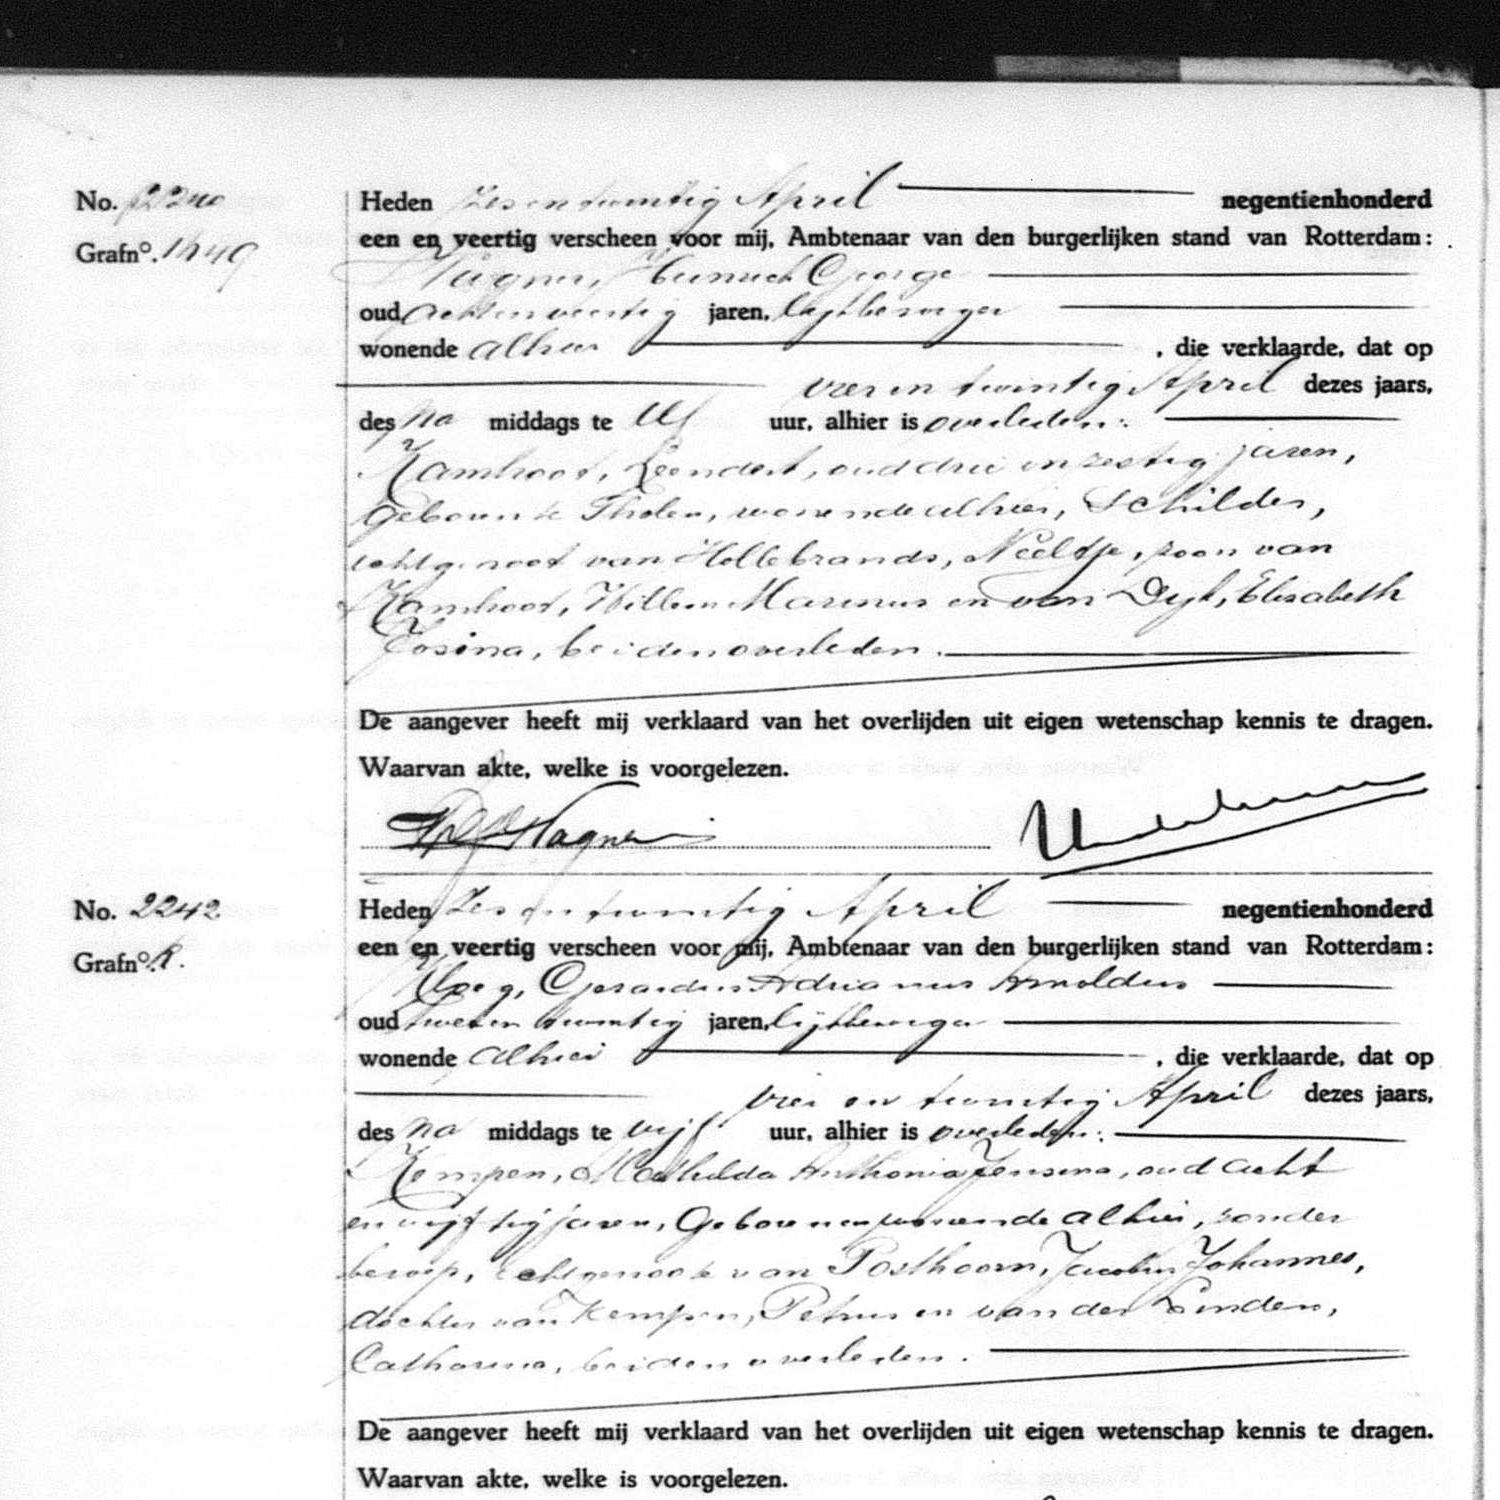 No. 2240
Grafn°. 1449
Heden Zes en twintig April negentienhonderd
een en veertig verscheen voor mij, Ambtenaar van den burgerlijken stand van Rotterdam:
Wagner, Heinrich George
oud achtenveertig jaren, lijkbezorger
wonende alhier , die verklaarde, dat op
vier en twintig April dezes jaars,
des na middags te uur, alhier is overleden:
Kamhoot, Leendert, oud drie en zestig jaren,
geboren te Tholen, wonende alhier, Schilder,
echtgenoot van Hollebrands, Neeltje, zoon van
Kamhoot, Willem Marinus en van Dijk, Elisabeth
Josina, beiden overleden.
De aangever heeft mij verklaard van het overlijden uit eigen wetenschap kennis te dragen.
Waarvan akte, welke is voorgelezen.
Wagner
No. 2242
Grafn°. R.
Heden Zes en twintig April negentienhonderd
een en veertig verscheen voor mij, Ambtenaar van den burgerlijken stand van Rotterdam:
Gerardus Adrianus Arnoldus
oud twee en twintig jaren, lijkbezorger
wonende alhier , die verklaarde, dat op
vier en twintig April dezes jaars,
des na middags te vijf uur, alhier is overleden:
Kempen, Mathilda Anthonia Jensina, oud acht
en vijftig jaren, Geboren en wonende alhier, zonder
beroep, echtgenoote van Posthoorn, Jacobus Johannes,
dochter van Kempen, Petrus en van der Linden,
Catharina, beiden overleden.
De aangever heeft mij verklaard van het overlijden uit eigen wetenschap kennis te dragen.
Waarvan akte, welke is voorgelezen.